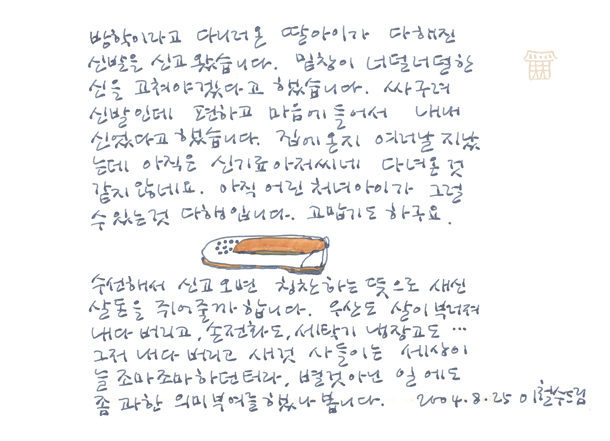 방학이라고 다니러온 딸아이가 다 해진
신발을 신고 왔습니다. 밑창이 너덜너덜한
신을 고쳐야겠다고 했습니다. 싸구려
신발인데 편하고 마음에 들어서 내내
신었다고 했습니다. 집에 온지 여러날 지났
는데 아직은 신기료아저씨네 다녀온 것
같지 않네요. 아직 어린 처녀아이가 그럴
수 있는 것 다행입니다. 고맙기도 하구요.
수선해서 신고 오면 칭찬하는 뜻으로 새신
살 돈을 쥐어줄까 합니다. 우산도 살이 부러져
내다 버리고, 손전화도, 세탁기 냉장고도 …
그저 내다 버리고 새것 사들이는 세상이
늘 조마조마하던 터라, 별것 아닌 일에도
좀 과한 의미부여를 했나 봅니다. 2004.8.25 이철수드림